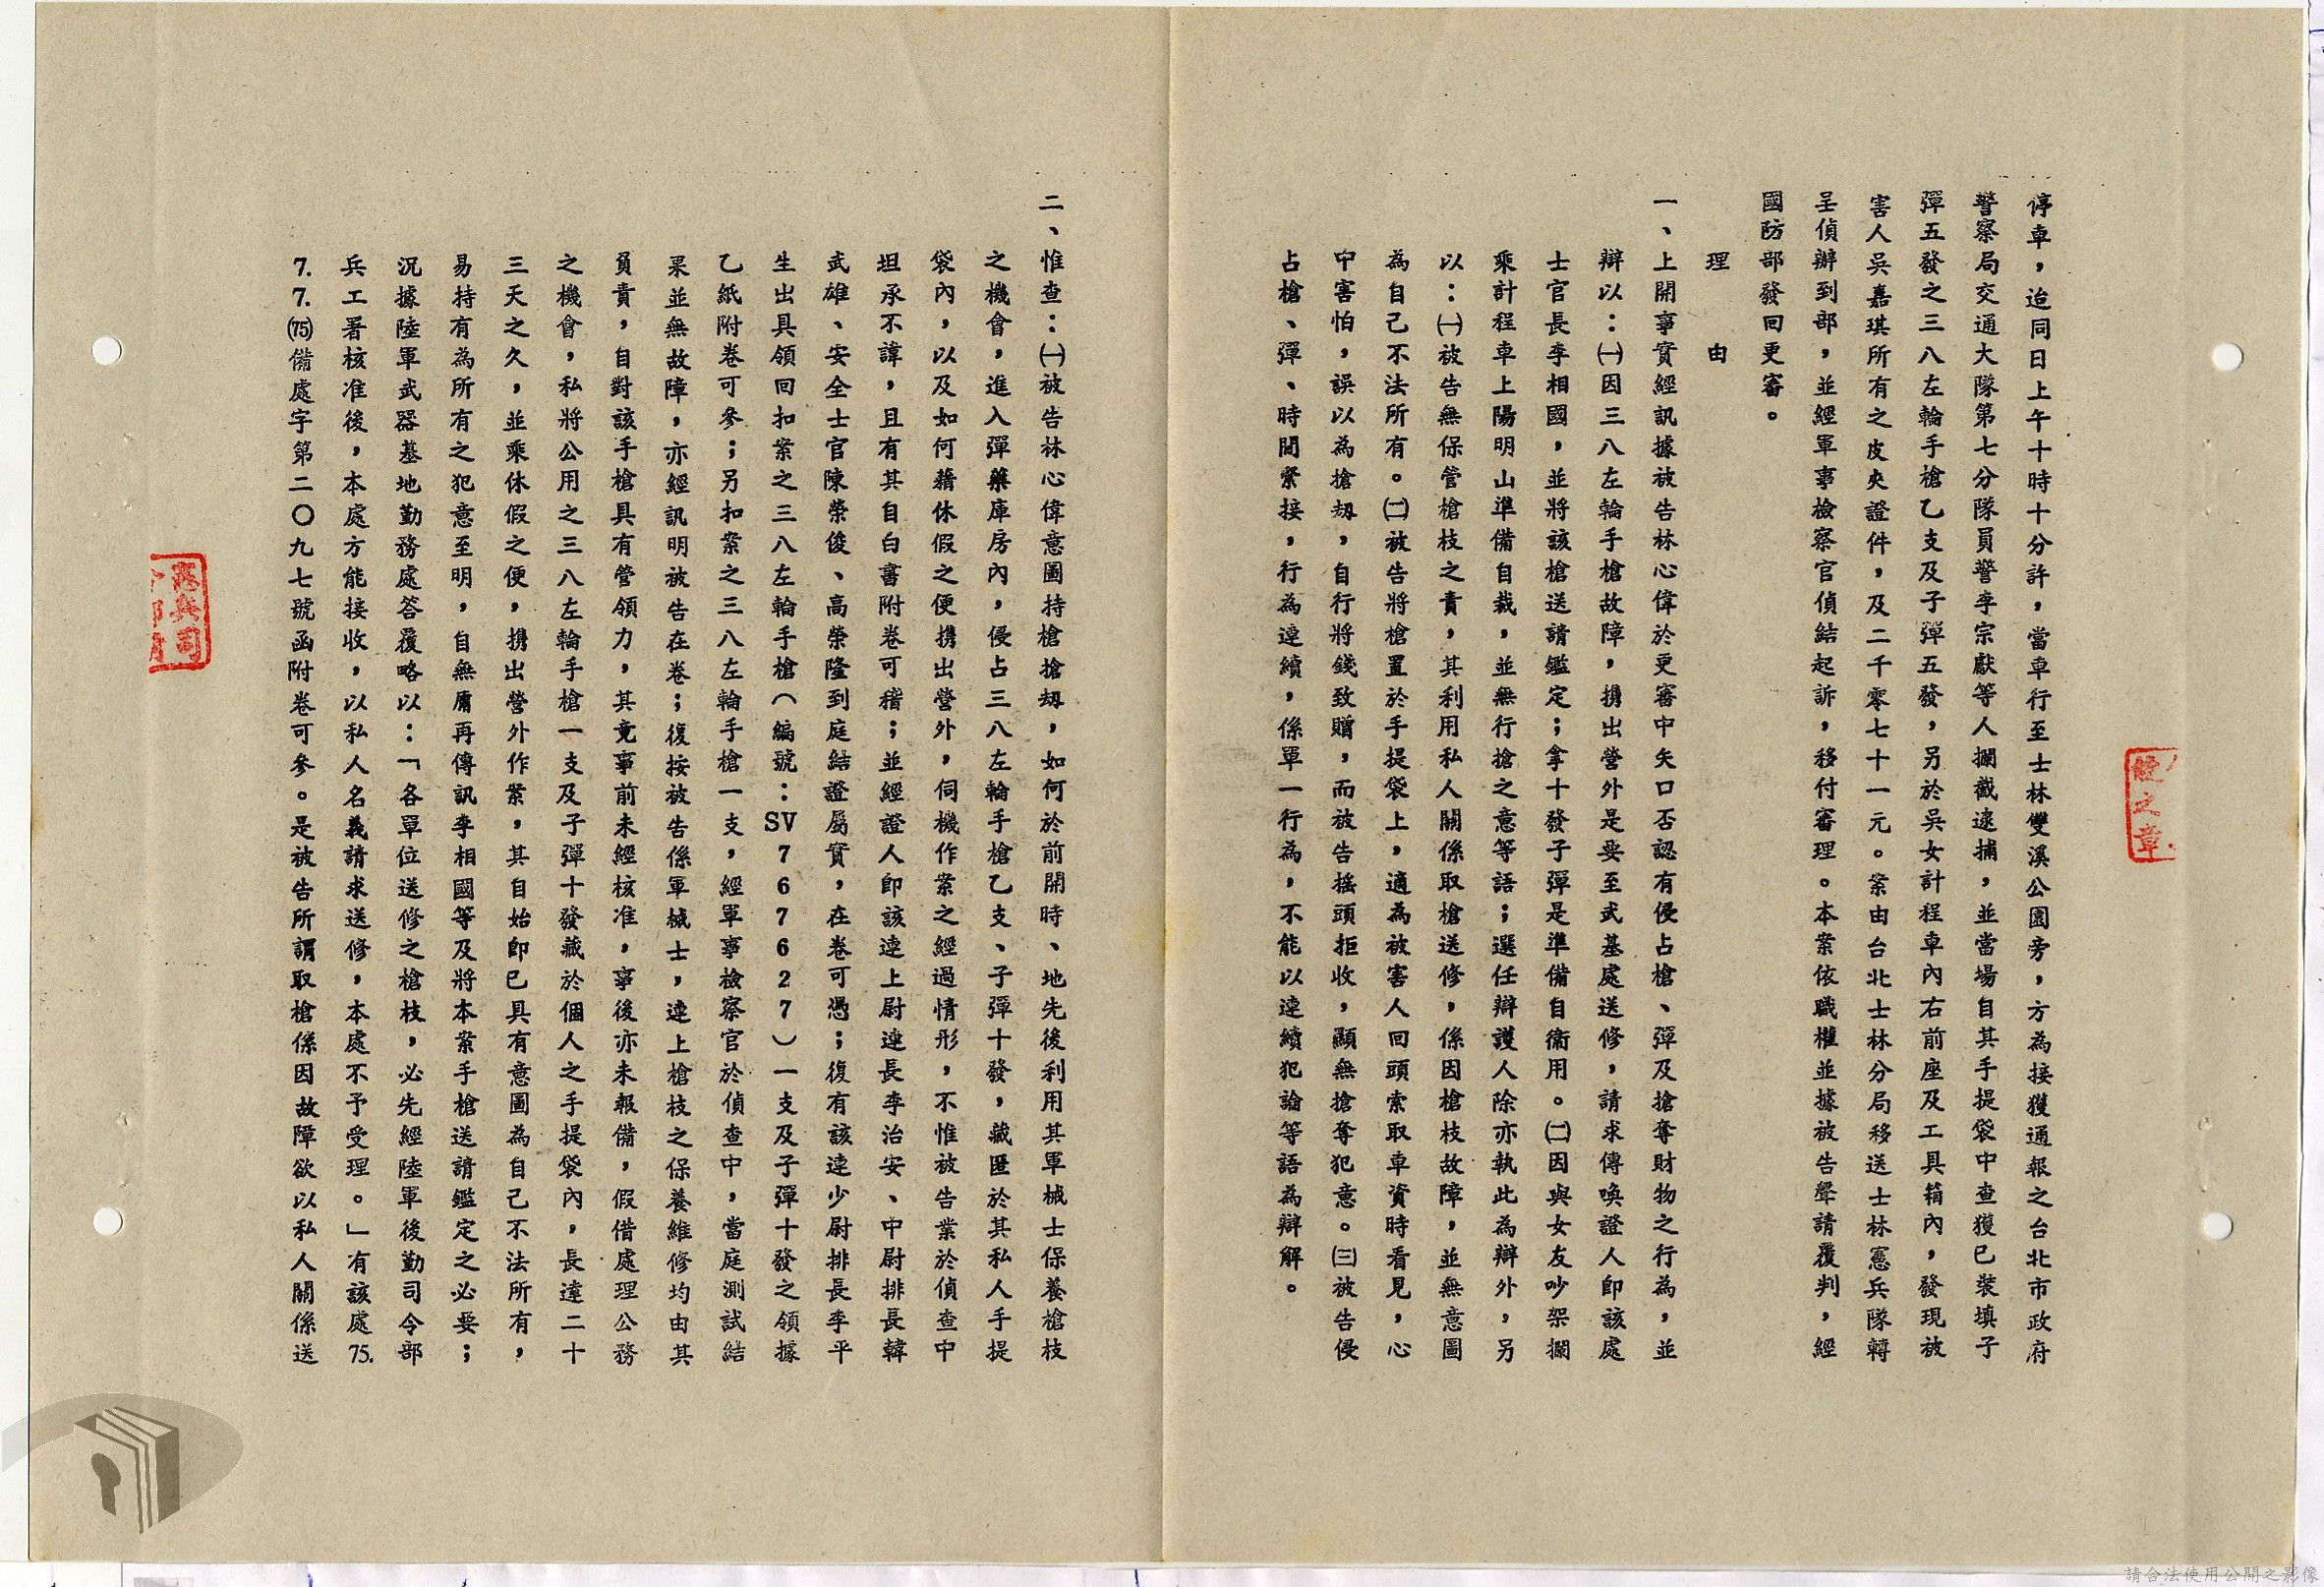 停車，迨同日上午十時十分許，當車行至士林雙溪公園旁，方為接獲通報之台北市政府
警察局交通大隊第七分隊員警李宗獻等人攔截逮捕，並當場自其手提袋中查獲已裝填子
彈五發之三八左輪手槍乙支及子彈五發，另於吳女計程車內右前座及工具箱內，發現被
害人吳嘉琪所有之皮夾證件，及二千零七十一元。案由台北士林分局移送士林憲兵隊轉
呈偵辦到部，並經軍事檢察官偵結起訴，移付審理。本案依職權並據被告聲請覆判，經
國防部發回更審。
理　由
一、上開事實經訊據被告林心偉於更審中矢口否認有侵占槍、彈及搶奪財物之行為，並
辯以：㈠因三八左輪手槍故障，携出營外是要至武基處送修，請求傳喚證人即該處
士官長李相國，並將該槍送請鑑定；拿十發子彈是準備自衞用。㈡因與女友吵架攔
乘計程車上陽明山準備自裁，並無行搶之意等語；選任辯護人除亦執此為辯外，另
以：㈠被告無保管槍枝之責，其利用私人關係取槍送修，係因槍枝故障，並無意圖
為自己不法所有。㈡被告將槍置於手提袋上，適為被害人回頭索取車資時看見，心
中害怕，誤以為搶刼，自行將錢致贈，而被告搖頭拒收，顯無搶奪犯意。㈢被告侵
占槍、彈、時間緊接，行為連續，係單一行為，不能以連續犯論等語為辯解。
二、惟查：㈠被告林心偉意圖持槍搶刼，如何於前開時、地先後利用其軍械士保養槍枝
之機會，進入彈藥庫房內，侵占三八左輪手槍乙支、子彈十發，藏匿於其私人手提
袋內，以及如何藉休假之便携出營外，伺機作案之經過情形，不惟被告業於偵查中
坦承不諱，且有其自白書附卷可稽；並經證人即該連上尉連長李治安、中尉排長韓
武雄、安全士官陳榮俊、高榮隆到庭結證屬實，在卷可憑；復有該連少尉排長李平
生出具領回扣案之三八左輪手槍（編號：SV767627）一支及子彈十發之領據
乙紙附卷可參；另扣案之三八左輪手槍一支，經軍事檢察官於偵查中，當庭測試結
果並無故障，亦經訊明被告在卷；復按被告係軍械士，連上槍枝之保養維修均由其
負責，自對該手槍具有管領力，其竟事前未經核准，事後亦未報備，假借處理公務
之機會，私將公用之三八左輪手槍一支及子彈十發藏於個人之手提袋內，長達二十
三天之久，並乘休假之便，携出營外作案，其自始即已具有意圖為自己不法所有，
易持有為所有之犯意至明，自無庸再傳訊李相國等及將本案手槍送請鑑定之必要；
況據陸軍武器基地勤務處答覆略以：「各單位送修之槍枝，必先經陸軍後勤司令部
兵工署核准後，本處方能接收，以私人名義請求送修，本處不予受理。」有該處75.
7.7.(75)備處字第二〇九七號函附卷可參。是被告所謂取槍係因故障欲以私人關係送
請合法使用公開之影像